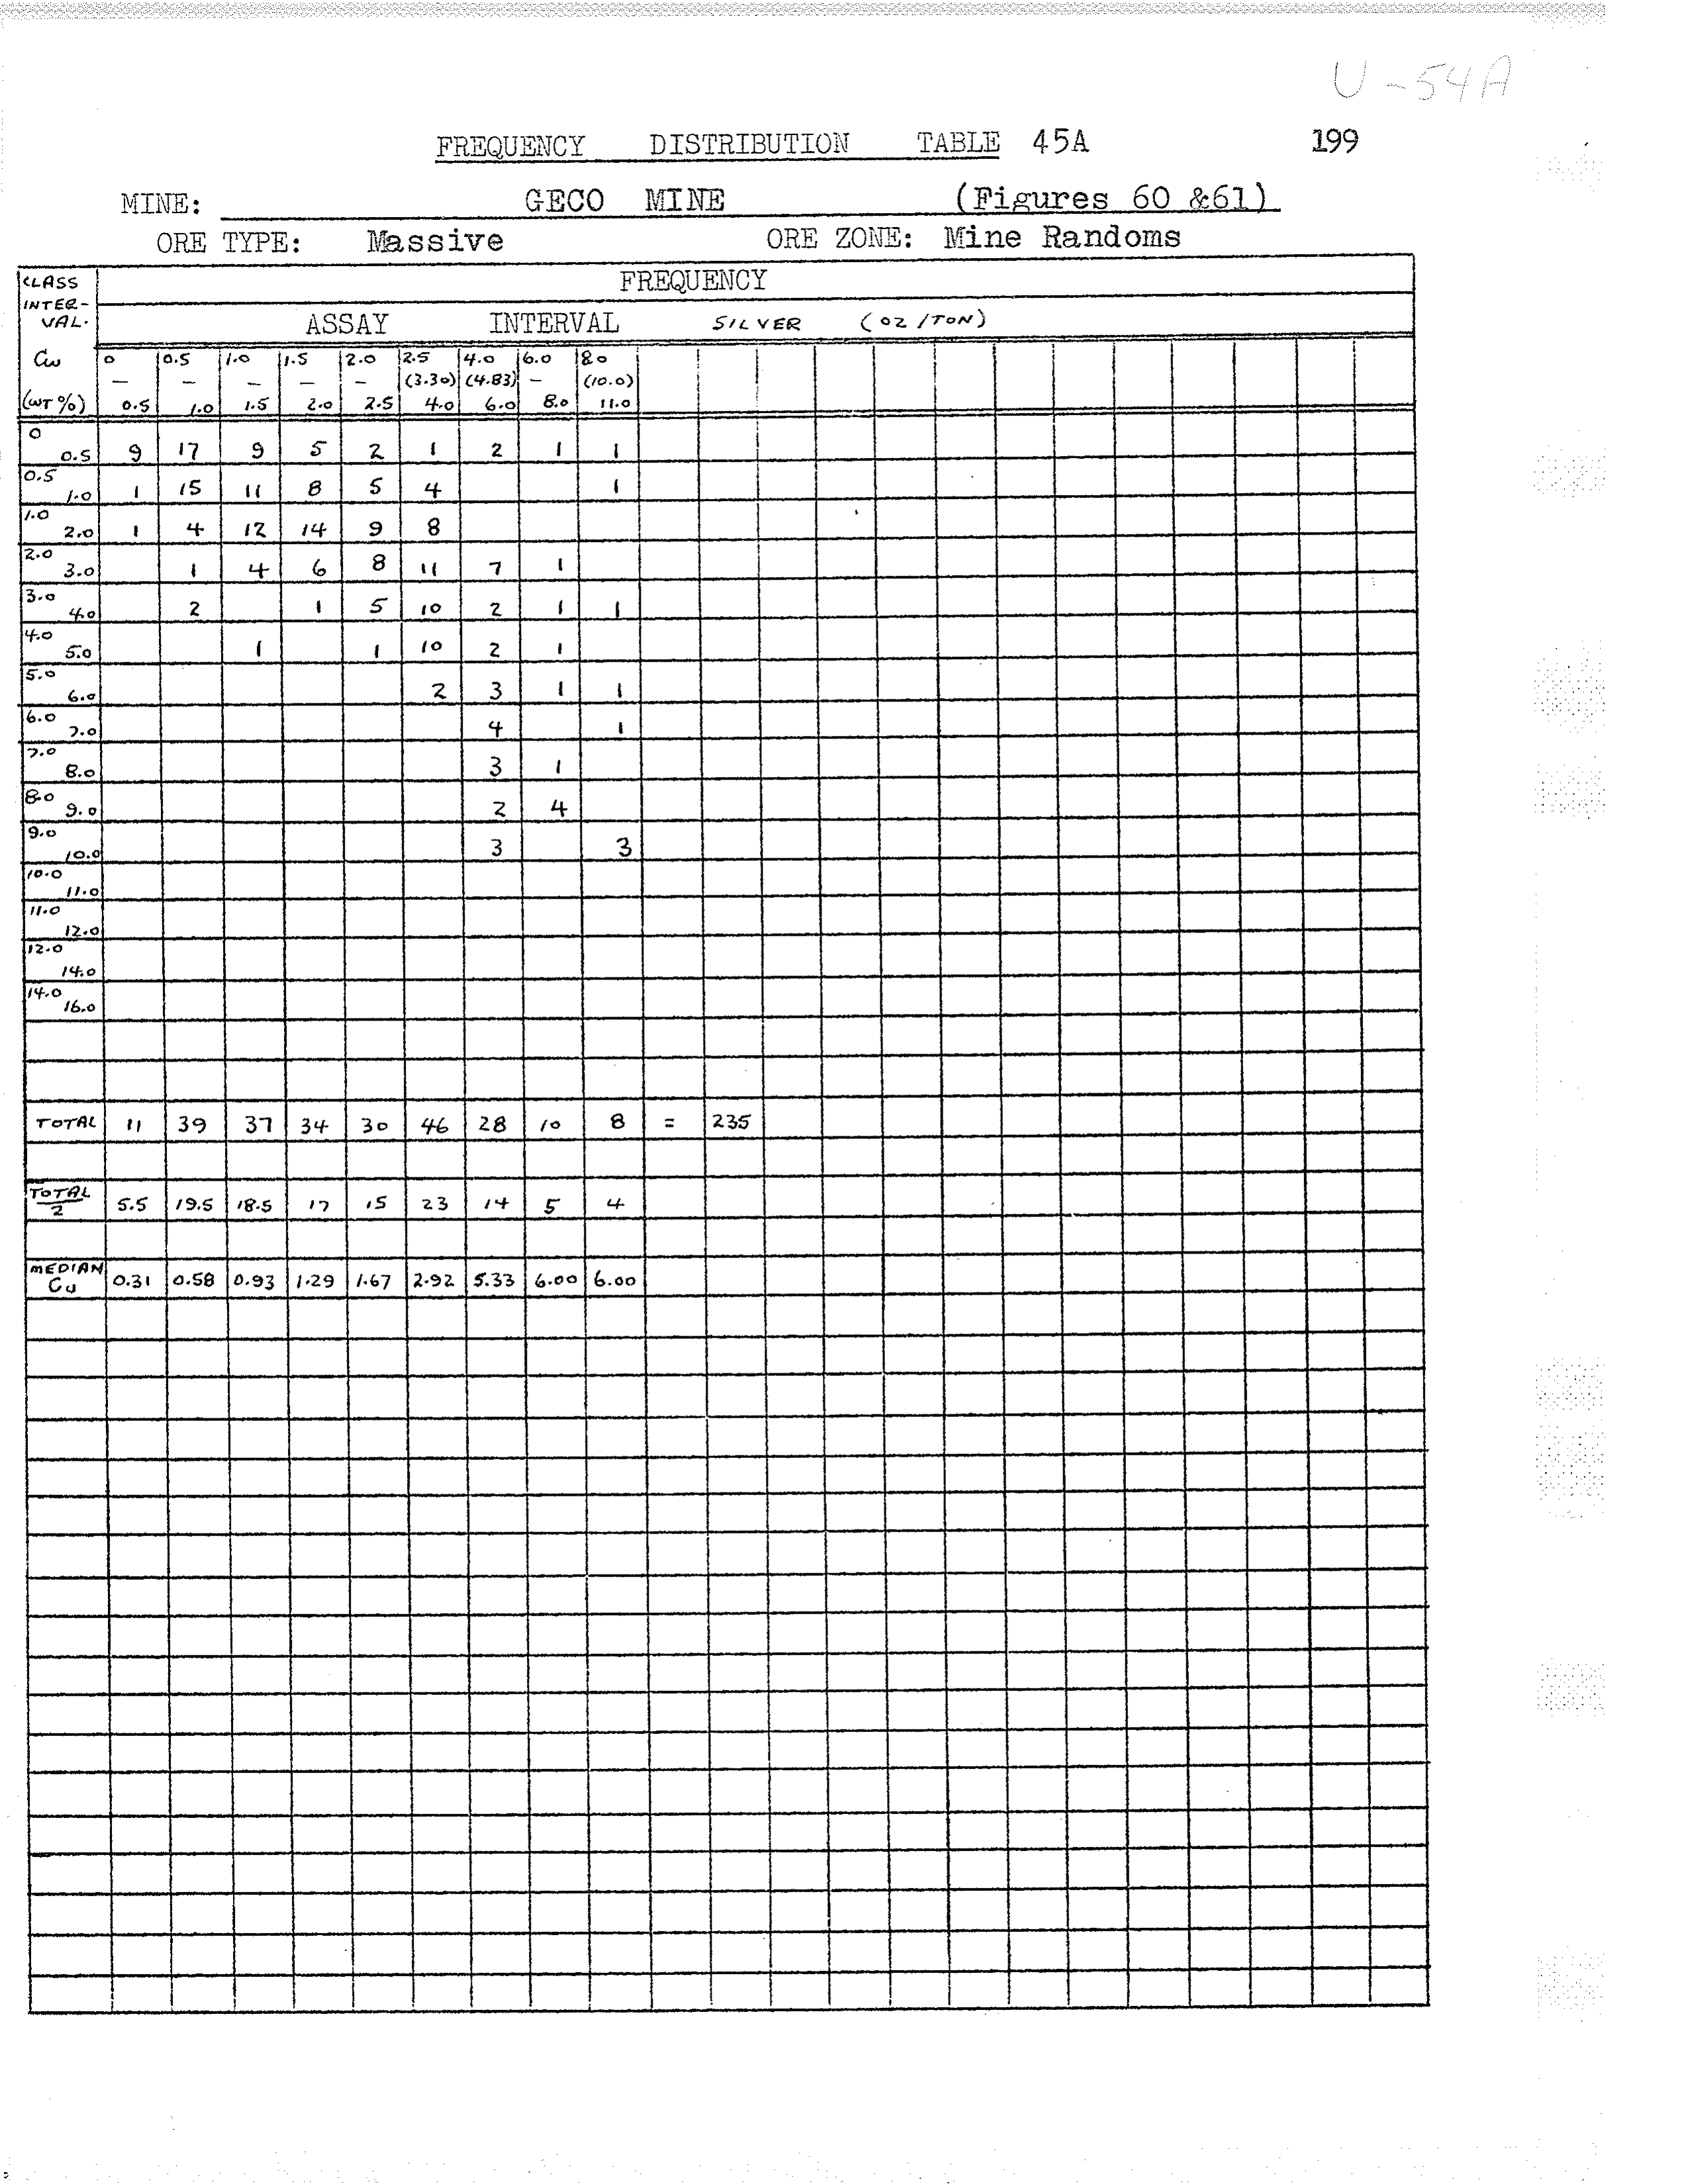 U-54A
FREQUENCY DISTRIBUTION TABLE 45A 199
MINE: GECO MINE (Figures 60 &61)
ORE TYPE: Massive ORE ZONE: Mine Randoms
CLASS FREQUENCY
INTER-
VAL. ASSAY INTERVAL SILVER (OZ/TON)
Cu 0 0.5 1.0 1.5 2.0 2.5 4.0 6.0 8.0
— — — — — (3.30) (4.83) — (10.0)
(WT %) 0.5 1.0 1.5 2.0 2.5 4.0 6.0 8.0 11.0
0
0.5 9 17 9 5 2 1 2 1 1
0.5
1.0 1 15 11 8 5 4 1
1.0
2.0 1 4 12 14 9 8
2.0
3.0 1 4 6 8 11 7 1
3.0
4.0 2 1 5 10 2 1 1
4.0
5.0 1 1 10 2 1
5.0
6.0 2 3 1 1
6.0
7.0 4 1
7.0
8.0 3 1
8.0
9.0 2 4
9.0
10.0 3 3
10.0
11.0
11.0
12.0
12.0
14.0
14.0
16.0
TOTAL 11 39 37 34 30 46 28 10 8 = 235
TOTAL
2 5.5 19.5 18.5 17 15 23 14 5 4
MEDIAN
Cu 0.31 0.58 0.93 1.29 1.67 2.92 5.33 6.00 6.00